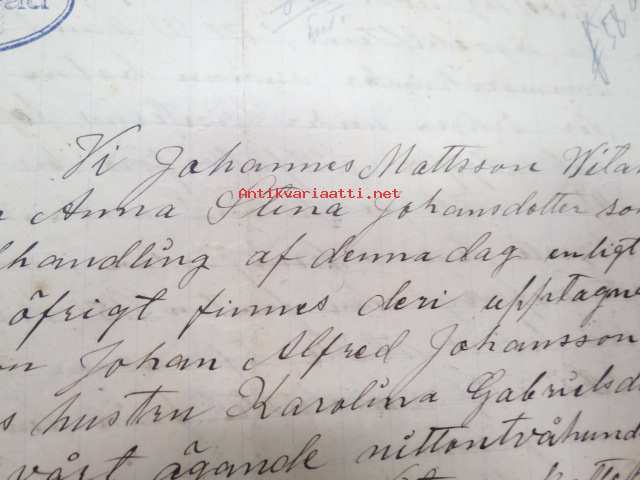 Vi Johannes Mattsson Wita
Antikvariaatti.net
Anna Stina Johansdotter so
handling af denna dag enligt
öfrigt finnes deri upptagne
on Johan Alfred Johansson
s hustru Karolina Gabrielsd
vårt ägande nittontvåhund